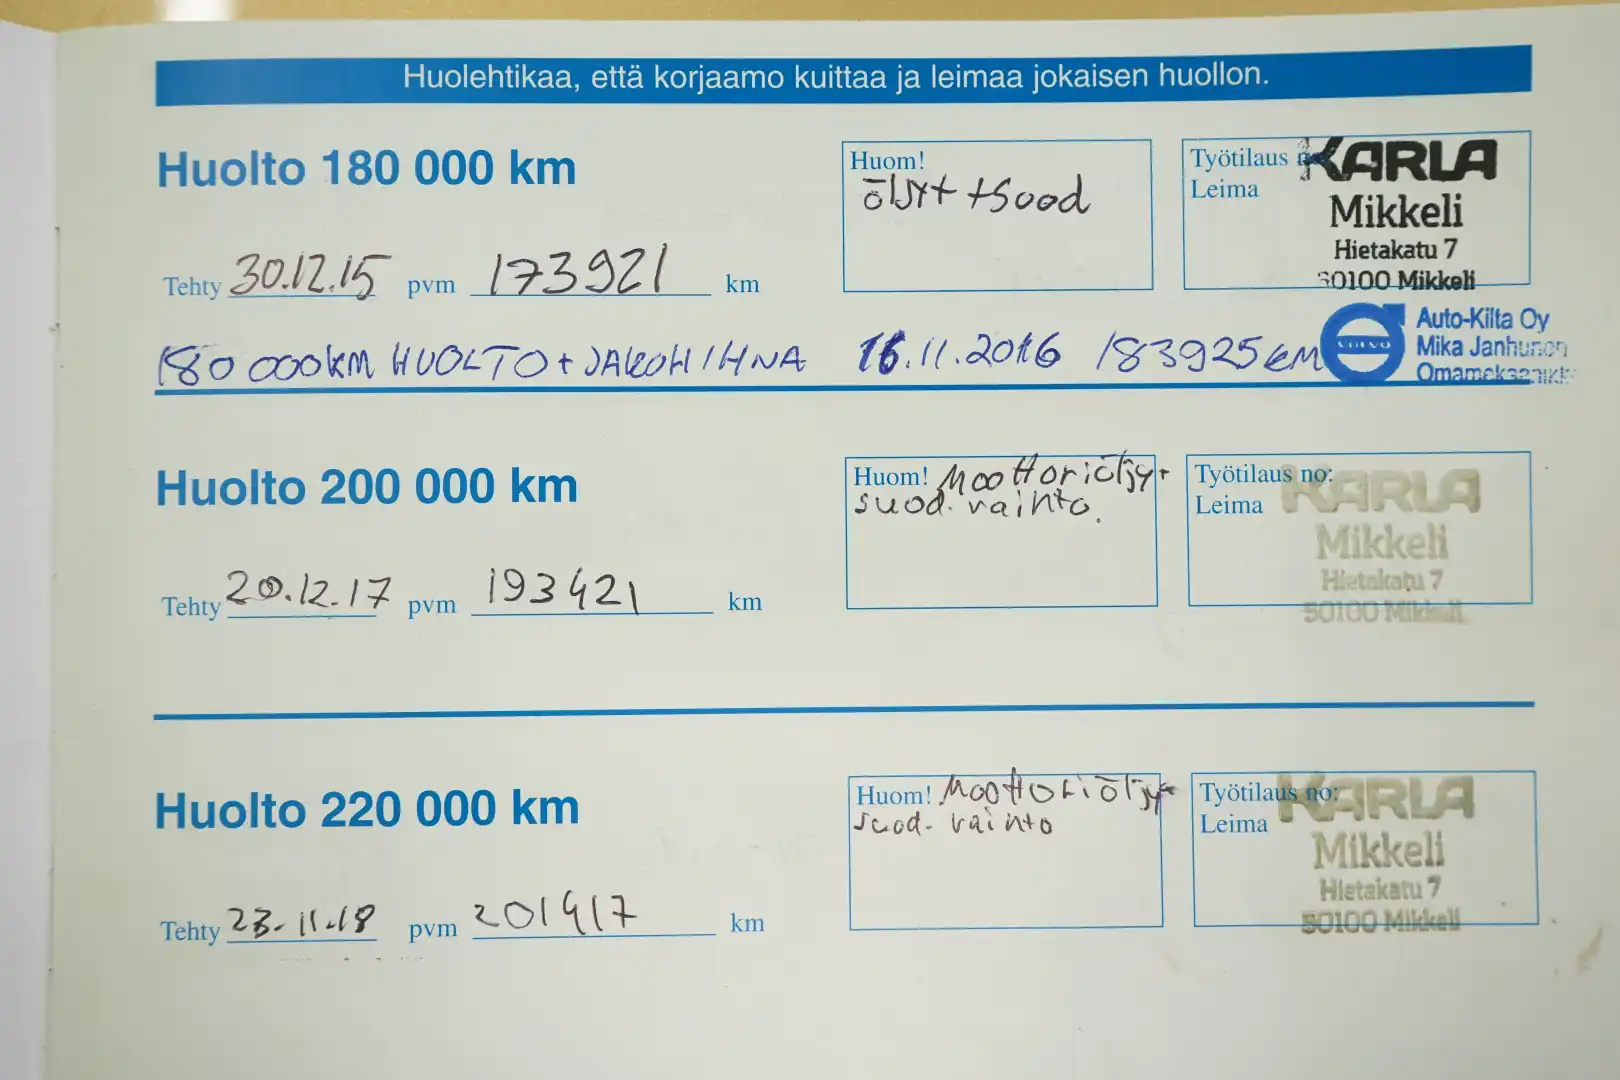 Huolehtikaa, että korjaamo kuittaa ja leimaa jokaisen huollon.
Huolto 180 000 km
Huom!
öljyt + suod
Työtilaus
Leima
KARLA
Mikkeli
Hietakatu 7
50100 Mikkeli
Tehty 30.12.15 pvm 173921 km
180 000KM HUOLTO + JAKOHIHNA 16.11.2016 183925KM
Auto-Kilta Oy
Mika Janhunen
VOLVO
Huolto 200 000 km
Huom! Moottoriöljy+
suod. vaihto.
Työtilaus no:
Leima
KARLA
Mikkeli
Hietakatu 7
50100 Mikkeli
Tehty 20.12.17 pvm 193421 km
Huolto 220 000 km
Huom! Moottoriöljy+
suod. vaihto
Työtilaus no:
Leima
KARLA
Mikkeli
Hietakatu 7
50100 Mikkeli
Tehty 23.11.18 pvm 201417 km